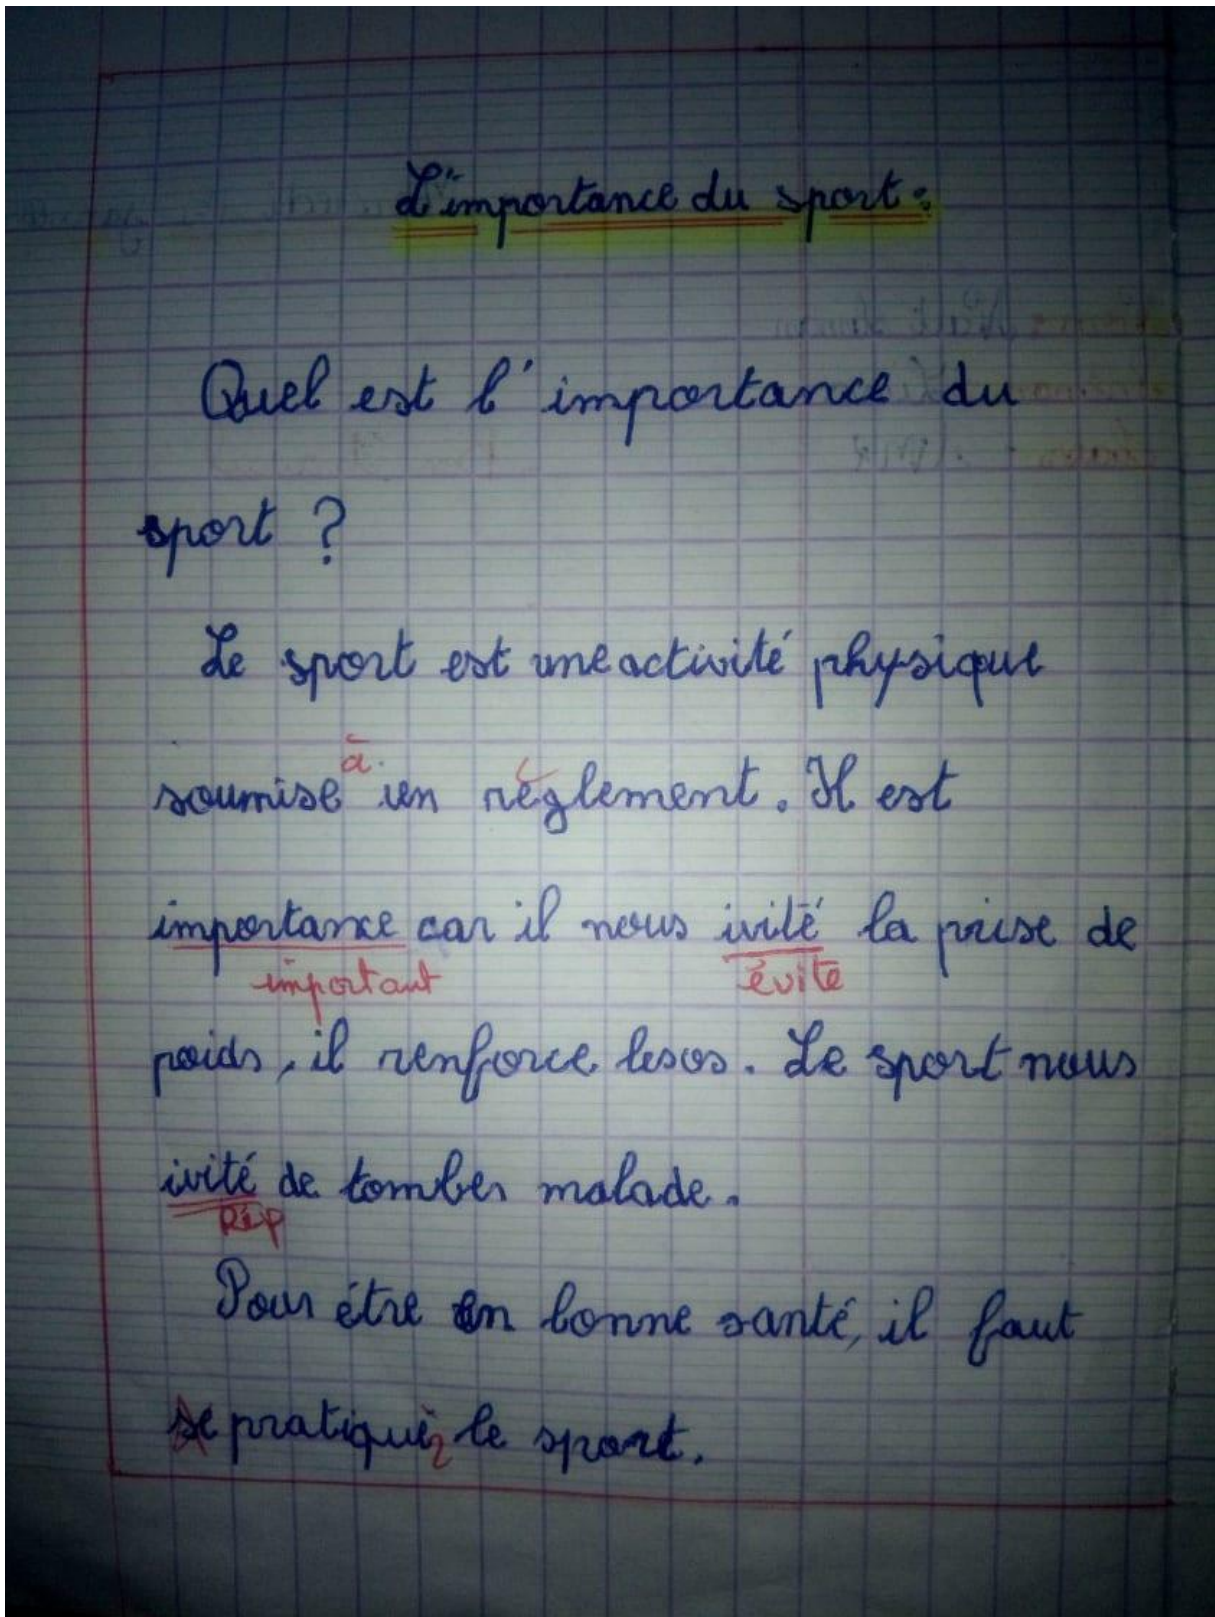 L'importance du sport :
Quel est l'importance du
sport ?
Le sport est une activité physique
à
soumise un réglement. Il est
importance car il nous ivité la prise de
important évite
poids, il renforce les os. Le sport nous
ivité de tomber malade.
Rép
Pour étre en bonne santé, il faut
se pratiquer le sport.